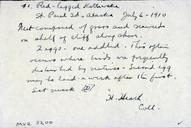 41. Red-legged Kittiwake
St. Paul Isl., Alaska July 6-1910
Nest composed of grass and seaweeds
on shelf of cliff along shore.
2 eggs - one addled. This often
occurs where birds are frequently
disturbed by natives. Second egg
may be laid a week after the first.
Set mark
H. Heath
Coll.
MVZ 3200